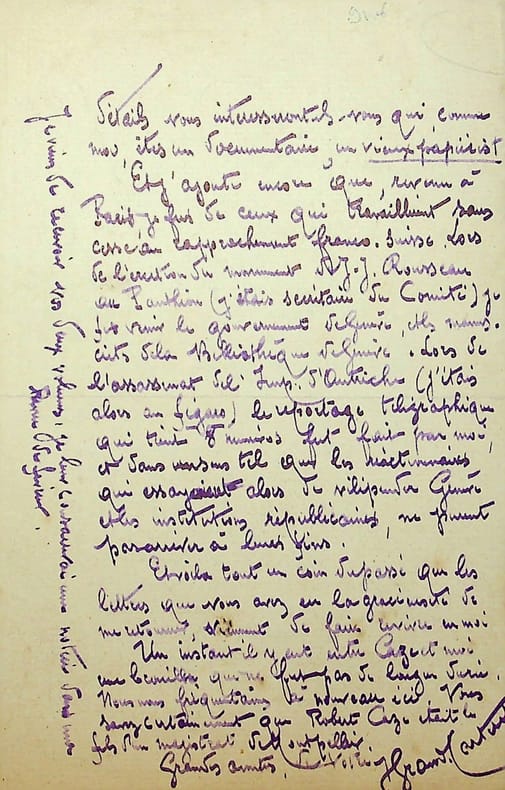 détails vous intéresseront-ils - vous qui comme
moi, êtes un documentaire, un vieux papiérist
Et j'ajoute encore que, revenu à
Paris je fus de ceux qui travaillèrent sans
cesse au rapprochement franco-suisse. Lors
de l'érection du monument à J.-J. Rousseau
au Panthéon (j'étais secrétaire du Comité) je
fis venir le gouvernement de Genève, et les manus-
crits de la Bibliothèque de Genève. Lors de
l'assassinat de l'Imp. d'Autriche (j'étais
alors au Figaro) le reportage télégraphique
qui tint 8 numéros fut fait par moi,
et dans un sens tel que les réactionnaires,
qui essayaient alors de vilipender Genève
et les institutions républicaines, ne purent
pas arriver à leurs fins.
Et voilà tout un coin du passé que les
lettres que vous avez eu la gracieuseté de
me retourner, viennent de faire revivre en moi
Un instant il y eut entre Caze et moi
une brouille qui ne fut pas de longue durée.
Nous nous fréquentâmes à nouveau ici. Vous
savez certainement que Robert Caze était le
fils d'un magistrat de Montpellier.
Grandes amitiés, à vous.
J Grand-Carteret
Je viens de recevoir vos deux volumes; je leur consacrerai une notice dans ma